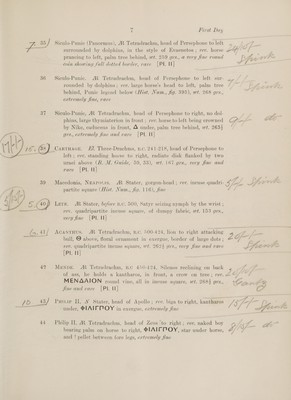 7 First Day
35 Siculo-Punic (Panormus), Æ Tetradrachm, head of Persephone to left
surrounded by dolphins, in the style of Evainetos; rev. horse
prancing to left, palm tree behind, wt. 259 grs., a very fine round
coin showing full dotted border, rare [Pl. II]
36 Siculo-Punic. Æ Tetradrachm, head of Persephone to left sur-
rounded by dolphins; rev. large horse's head to left, palm tree
behind, Punic legend below (Hist. Num., fig. ), wt. 268 grs.,
extremely fine, rare
37 Siculo-Punic, Æ Tetradrachm, head of Persephone to right, no dol-
phins, large thymiaterion in front; rev. horse to left being crowned
by Nike, caduceus in front, Δ under, palm tree behind, wt. 263½
grs., extremely fine and rare [Pl. II]
38 CARTHAGE. El. Three-Drachms, B.C. 241-218, head of Persephone to
left; rev. standing horse to right, radiate disk flanked by two
uraei above (B. M. Guide, 59, 33), wt. 167 grs., very fine and
rare [Pl. II]
39 Macedonia, NEAPOLIS. Æ Stater, gorgon-head; rev. incuse quadri-
partite square (Hist. Num., fig. 110), fine
40 LETE Æ Stater, before B.C. 500, Satyr seizing nymph by the wrist;
rev. quadripartite incuse square, of dumpy fabric, wt. 153 grs.,
very fine [Pl. II]
41 ACANTHUS. Æ Tetradrachm, B.C. 500-424, lion to right attacking
bull, Θ above, floral ornament in exergue, border of large dots;
rev. quadripartite incuse square, wt. 262½ grs., very fine and rare
[Pl. II]
42 MENDE. Æ Tetradrachm, B.C. 450-424, Silenus reclining on back
of ass, he holds a kantharos, in front, a crow on tree; rev.
ΜΕΝΔΑΙΟΝ round vine, all in incuse square, wt. 268½ grs.,
fine and rare [Pl. II]
43 PHILIP II, N Stater, head of Apollo; rev. biga to right, kantharos
under, ΦΙΛΙΓΓΟΥ in exergue, extremely fine
44 Philip II. Æ Tetradrachm, head of Zeus to right; rev. naked boy
bearing palm on horse to right, ΦΙΛΙΓΓΟΥ, star under horse,
and ? pellet between fore legs, extremely fine
Spink